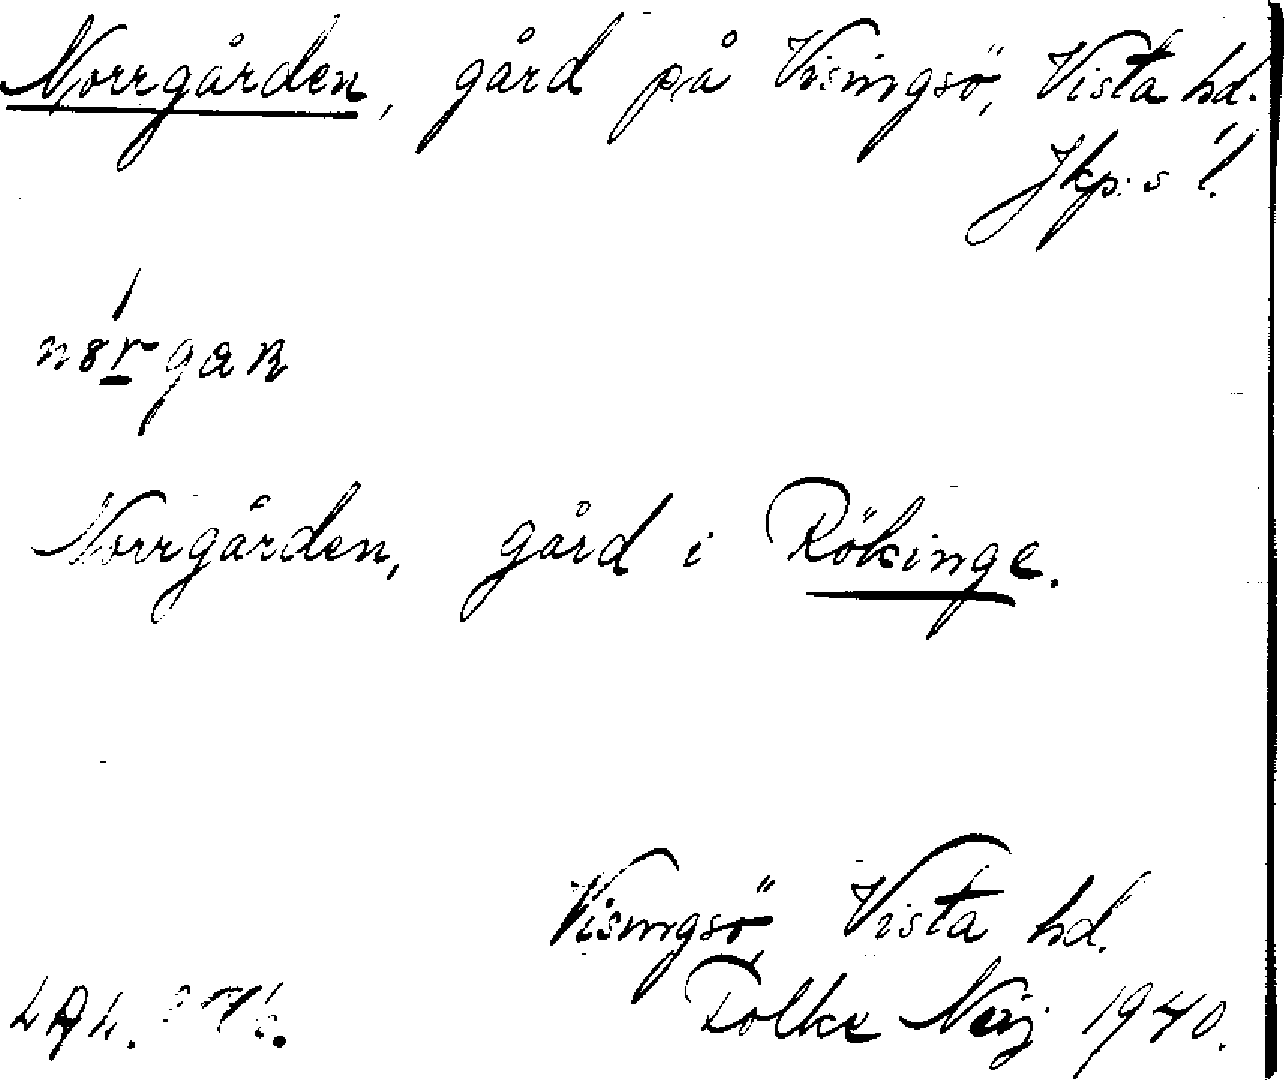 Norrgården, gård på Visingsö, Vista hd.
Jkp:s l.
Norrgården, gård i Rökinge.
Visingsö, Vista hd.
Folke Neij 1940.